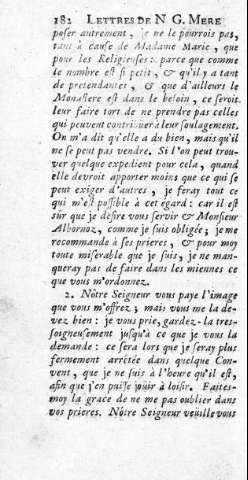 182 LETTRES DE N G. MERE
poser autrement, je ne le pourrois pas,
tant à cause de Madame Marie, que
pour les Religieuses: parce que comme
le nombre est si petit, & qu'il y a tant
de pretendantes, & que d'ailleurs le
Monastere est dans le besoin, ce seroit
leur faire tort de ne prendre pas celles
qui peuvent contribuër à leur soulagement.
On m'a dit qu'elle a du bien, mais qu'il
ne se peut pas vendre. Si l'on peut trou-
ver quelque expedient pour cela, quand
elle devroit apporter moins que ce qui se
peut exiger d'autres, je feray tout ce
qui m'est possible à cet égard: car il est
sûr que je desire vous servir & Monsieur
Albornoz, comme je suis obligée; je me
recommande à ses prieres, & pour moy
toute miserable que je suis, je ne man-
queray pas de faire dans les miennes ce
que vous m'ordonnez.
2. Nôtre Seigneur vous paye l'image
que vous m'offrez; mais vous me la de-
vez bien: je vous prie, gardez-la tres-
soigneusement jusqu'à ce que je vous la
demande: ce sera lors que je seray plus
fermement arrêtée dans quelque Con-
vent, que je ne suis à l'heure qu'il est,
afin que j'en puisse joüir à loisir. Faites-
moy la grace de ne me pas oublier dans
vos prieres. Nôtre Seigneur veüille vous